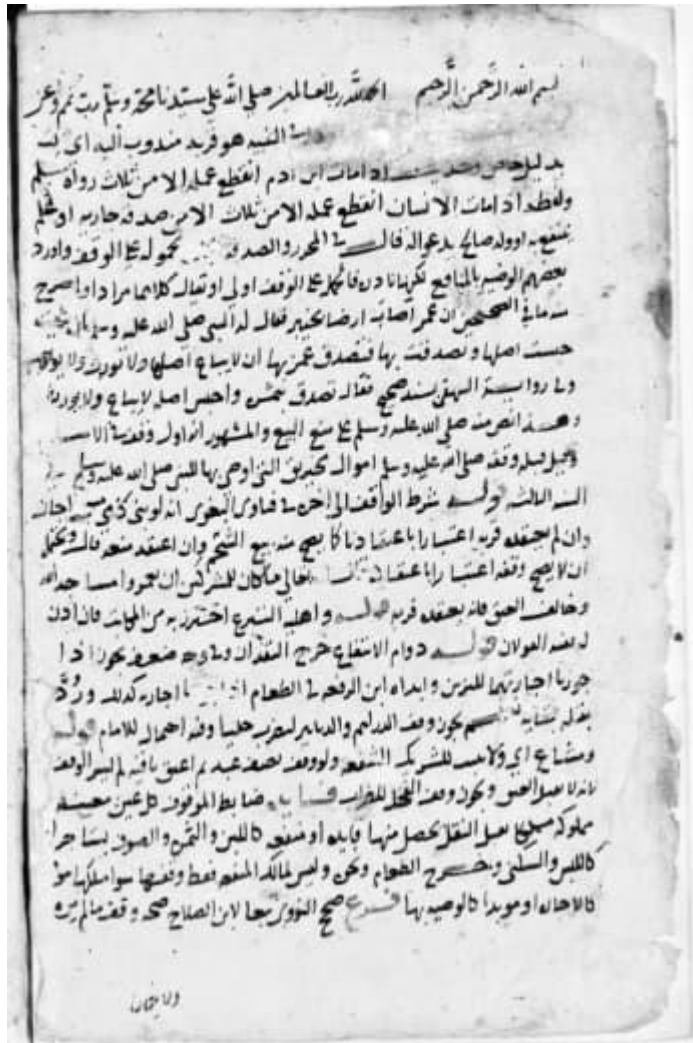 بسم الله الرحمن الرحيم الحمد لله رب العالمين صلى الله على سيدنا محمد وسلم رب تمم
التنبيه هو قربة مندوب اليه اى
بدليل اذا مات ابن ادم انقطع عمله الا من ثلاث رواه مسلم
ولفظه اذا مات الانسان انقطع عمله الا من ثلاث الا من صدقة جارية او علم
ينتفع به او ولد صالح يدعو له قال فى المحرر والصدقة محمولة على الوقف واورد
بعضهم الوصية بالمنافع لكنها نادرة فالحمل على الوقف اولى او يقال كلاهما مراد واصرح
منه ما فى الصحيحين ان عمر اصاب ارضا بخيبر فقال له النبى صلى الله عليه وسلم ان شيت
حبست اصلها وتصدقت بها فتصدق عمر بها ان لا يباع اصلها ولا تورث ولا
وفى رواية البيهقى بسند صحيح فقال تصدق بثمره واحبس اصله لا يباع ولا يورث
وهذا نص منه صلى الله عليه وسلم على منع البيع والمشهور انه اول وقف فى الاسلام
وقيل قبله وقفه صلى الله عليه وسلم اموال مخيريق التى اوصى بها للنبى صلى الله عليه وسلم فى
السنة الثالثة قوله شرط الواقف الى اخره فى فتاوى البغوى انه لو بنى ذمى مسجدا جاز
وان لم يعتقده قربة اعتبارا باعتقادنا كما يصح منه بيع الشحم وان اعتقد منعه قال ويحتمل
ان لا يصح وقفه اعتبارا باعتقاده قال تعالى ما كان للمشركين ان يعمروا مساجد الله
وخالف العتق فانه يعتقده قربة قوله واهلية التبرع احترز به من المكاتب فان اذن
له ففيه القولان قوله دوام الانتفاع خرج النقدان وفى وجه ضعيف يجوز اذا
جوزنا اجارتهما للتزيين وابداه ابن الرفعة فى الطعام اجارته كذلك ورد
بقلة نعم يجوز وقف الدراهم والدنانير لتضرب حليا وفيه احتمال للامام قوله
ومشاع اى ولا تجب للشريك الشفعة ولو وقف نصف عبد ثم اعتق باقيه لم يسر للوقف
لانه لا يقبل العتق ويجوز وقف الفحل للضراب ضابط الموقوف كل عين معينة
مملوكة ملكا يقبل النقل يحصل منها فايدة او منفعة كاللبن والثمر والصوف
كاللبس والسكنى وخرج الطعام ونحوه وليس لمالك المنفعة فقط وقفها سوا ملكها
كالاجارة او مؤبدا كالوصية بها فرع صحح النووى تبعا لابن الصلاح صحة وقف ما لم يره
ولا خيار